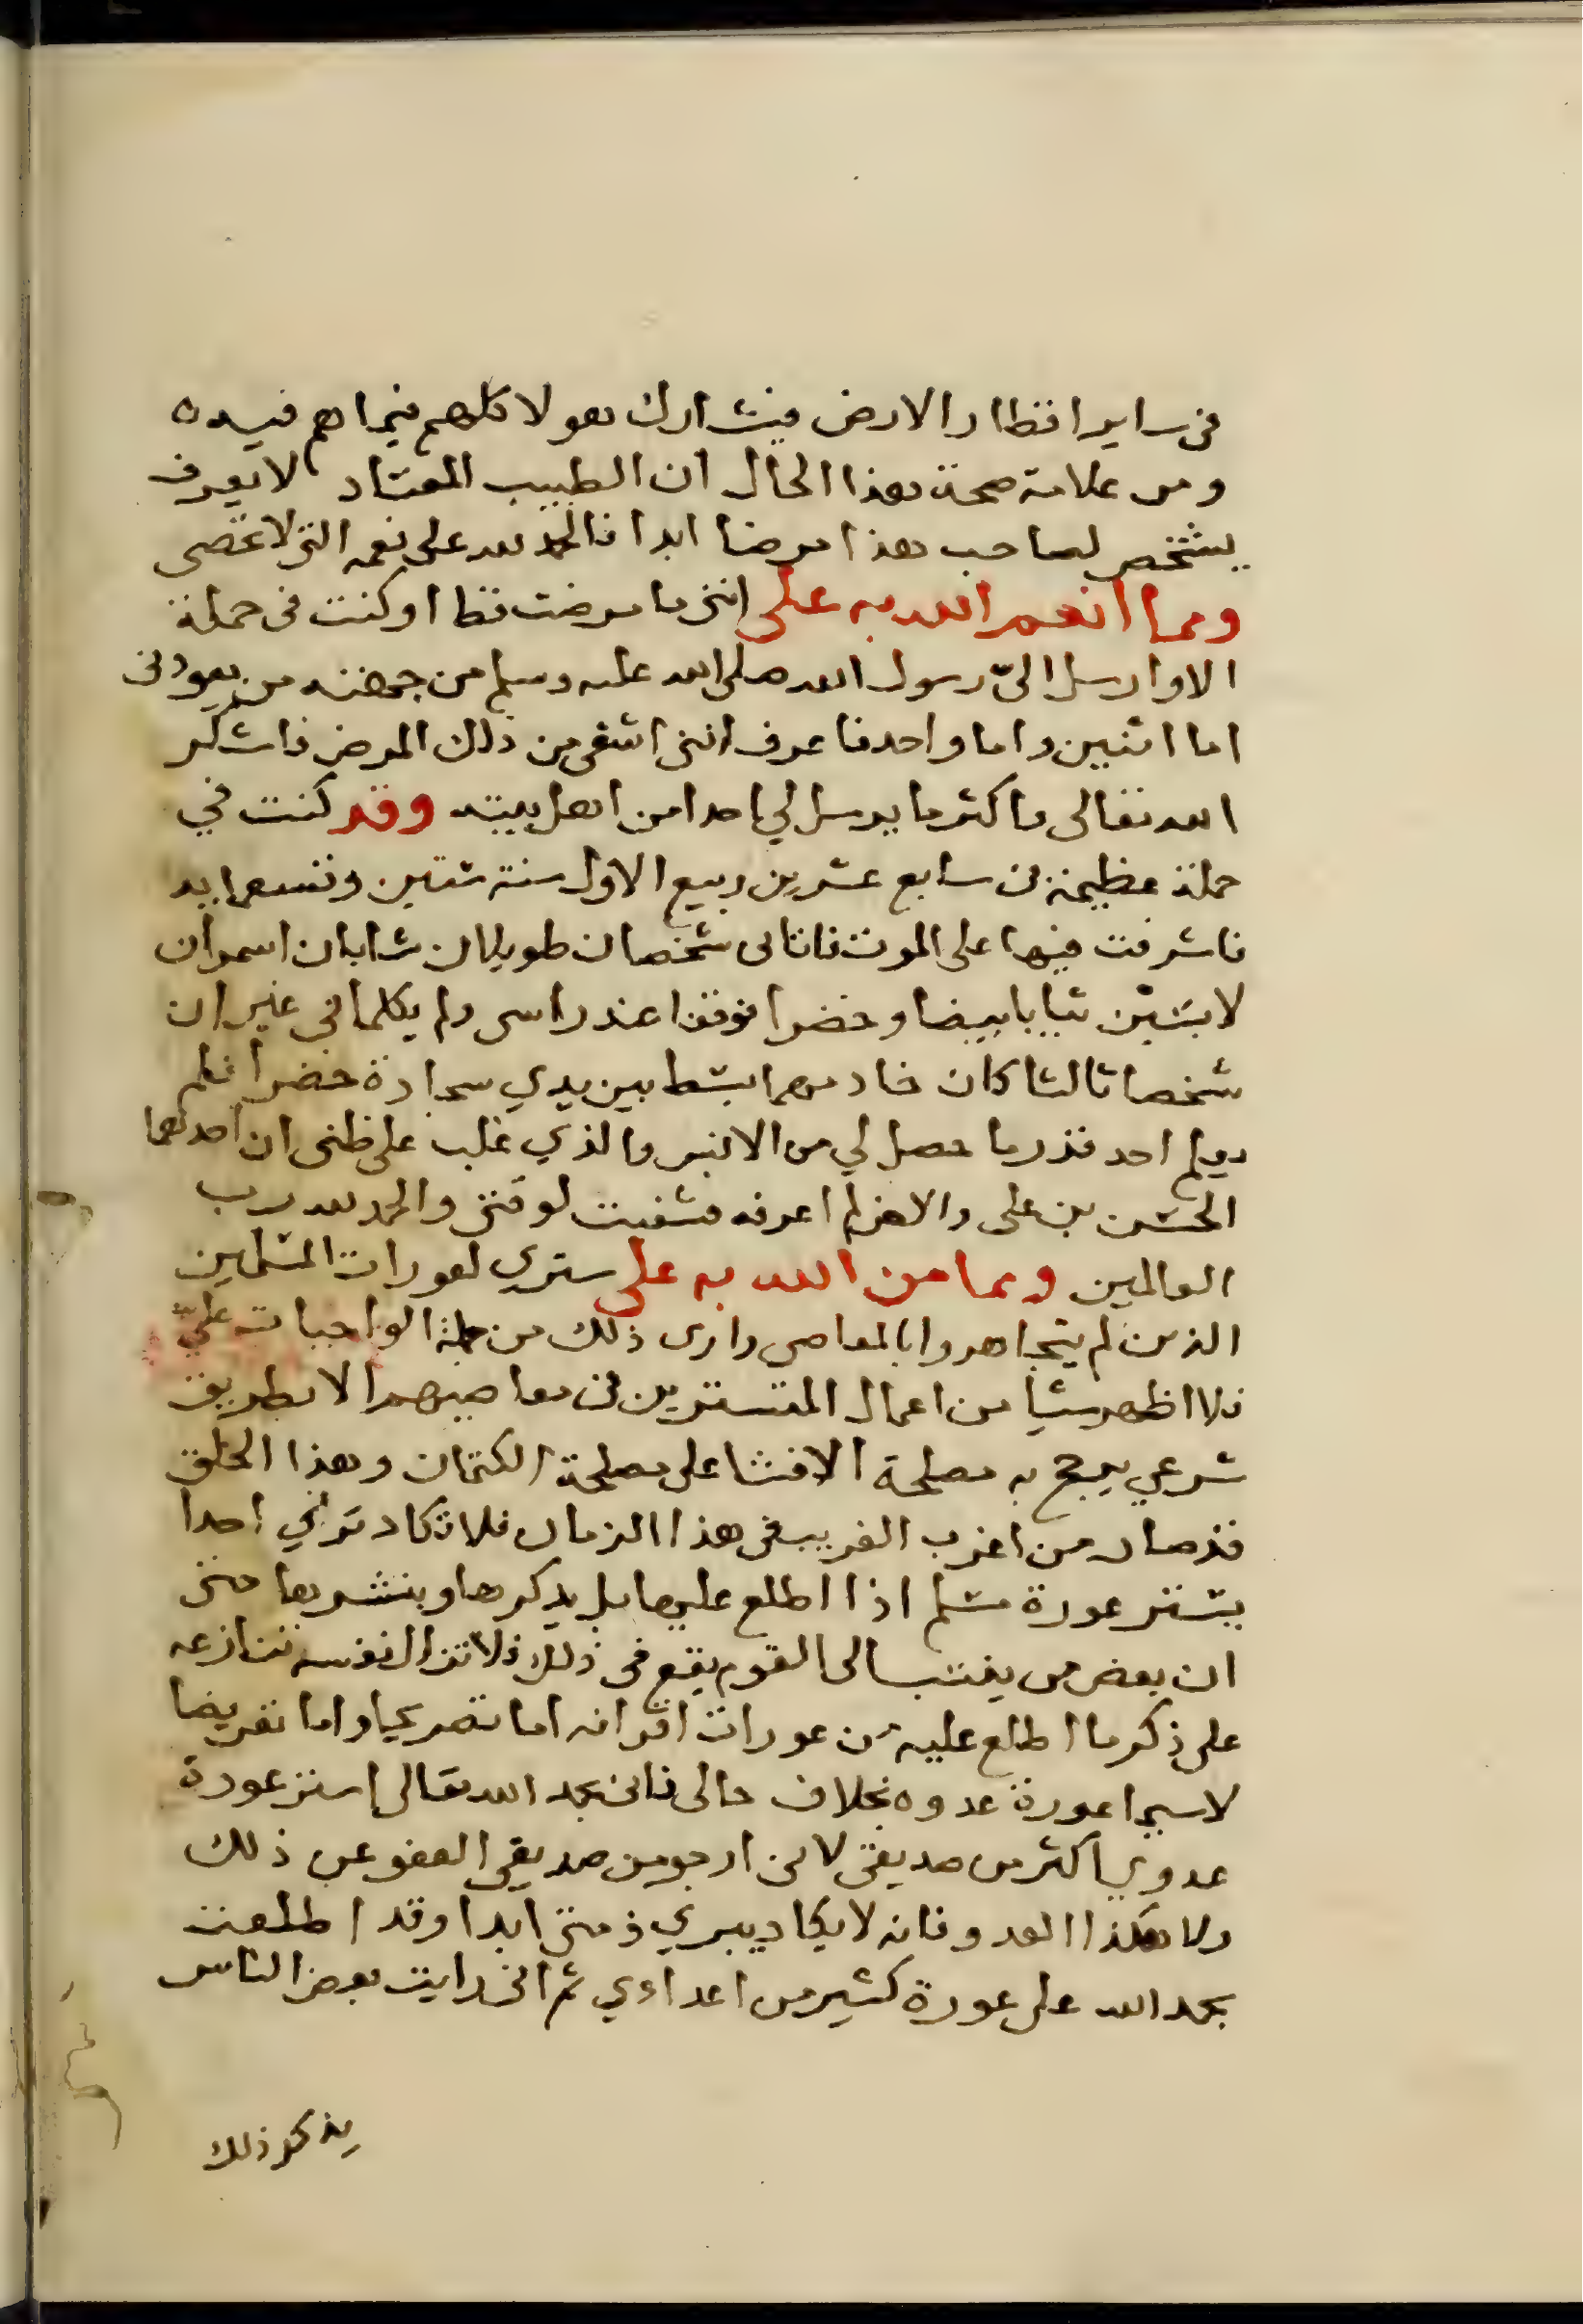 في ساير اقطار الارض فيشارك هولا كلهم فيما هم فيه ه
ومن علامة صحة هذا الحال ان الطبيب المعتاد لا يعرف
يشخص لصاحب هذا مرضا ابدا فالحمد لله على نعمه التي لا تحصى
ومما انعم الله به على انني ما مرضت قط او كنت في حملة
الا وارسل اليّ رسول الله صلى الله عليه وسلم من جهته من يعودني
اما اثنين واما واحد فاعرف انني اشفى من ذلك المرض فاشكر
الله تعالى واكثر ما يرسل لي احدا من اهل بيته وقد كنت في
حملة عظيمة في سابع عشرين ربيع الاول سنة ستين وتسعمايه
فاشرفت فيها على الموت فاتانى شخصان طويلان شابان اسمران
لابسين ثيابا بيضا وخضرا فوقفا عند راسى ولم يكلمانى غير ان
شخصا ثالثا كان خادمهما بسط بين يدي سجادة خضرا فلم
يعلم احد قدر ما حصل لي من الانس والذي غلب على ظنى ان احدهما
الحسن بن على والاخر لم اعرفه فشفيت لوقتي والحمد لله رب
العالمين ومما من الله به على ستري لعورات المسلمين
الذين لم يتجاهروا بالمعاصى وارى ذلك من جملة الواجبات عليّ
فلا اظهر شيا من اعمال المتسترين في معاصيهم الا بطريق
شرعي يرجح به مصلحة الافشا على مصلحة الكتمان وهذا الخلق
قد صار من اغرب الغريب في هذا الزمان فلا تكاد ترى احدا
يستر عورة مسلم اذا اطلع عليها بل يذكرها وينشرها حتى
ان بعض من ينتسب الى القوم يقع في ذلك فلا تزال نفسه تنازعه
على ذكر ما اطلع عليه من عورات اقرانه اما تصريحا واما تعريضا
لاسيما عورة عدوه بخلاف حالى فانى بحمد الله تعالى استر عورة
عدوي اكثر من صديقي لانى ارجو من صديقي العفو عن ذلك
ولا هكذا العدو فانه لا يكاد يبري ذمتي ابدا وقد اطلعت
بحمد الله على عورة كثير من اعداءي ثم انى رايت بعض الناس
يذكر ذلك